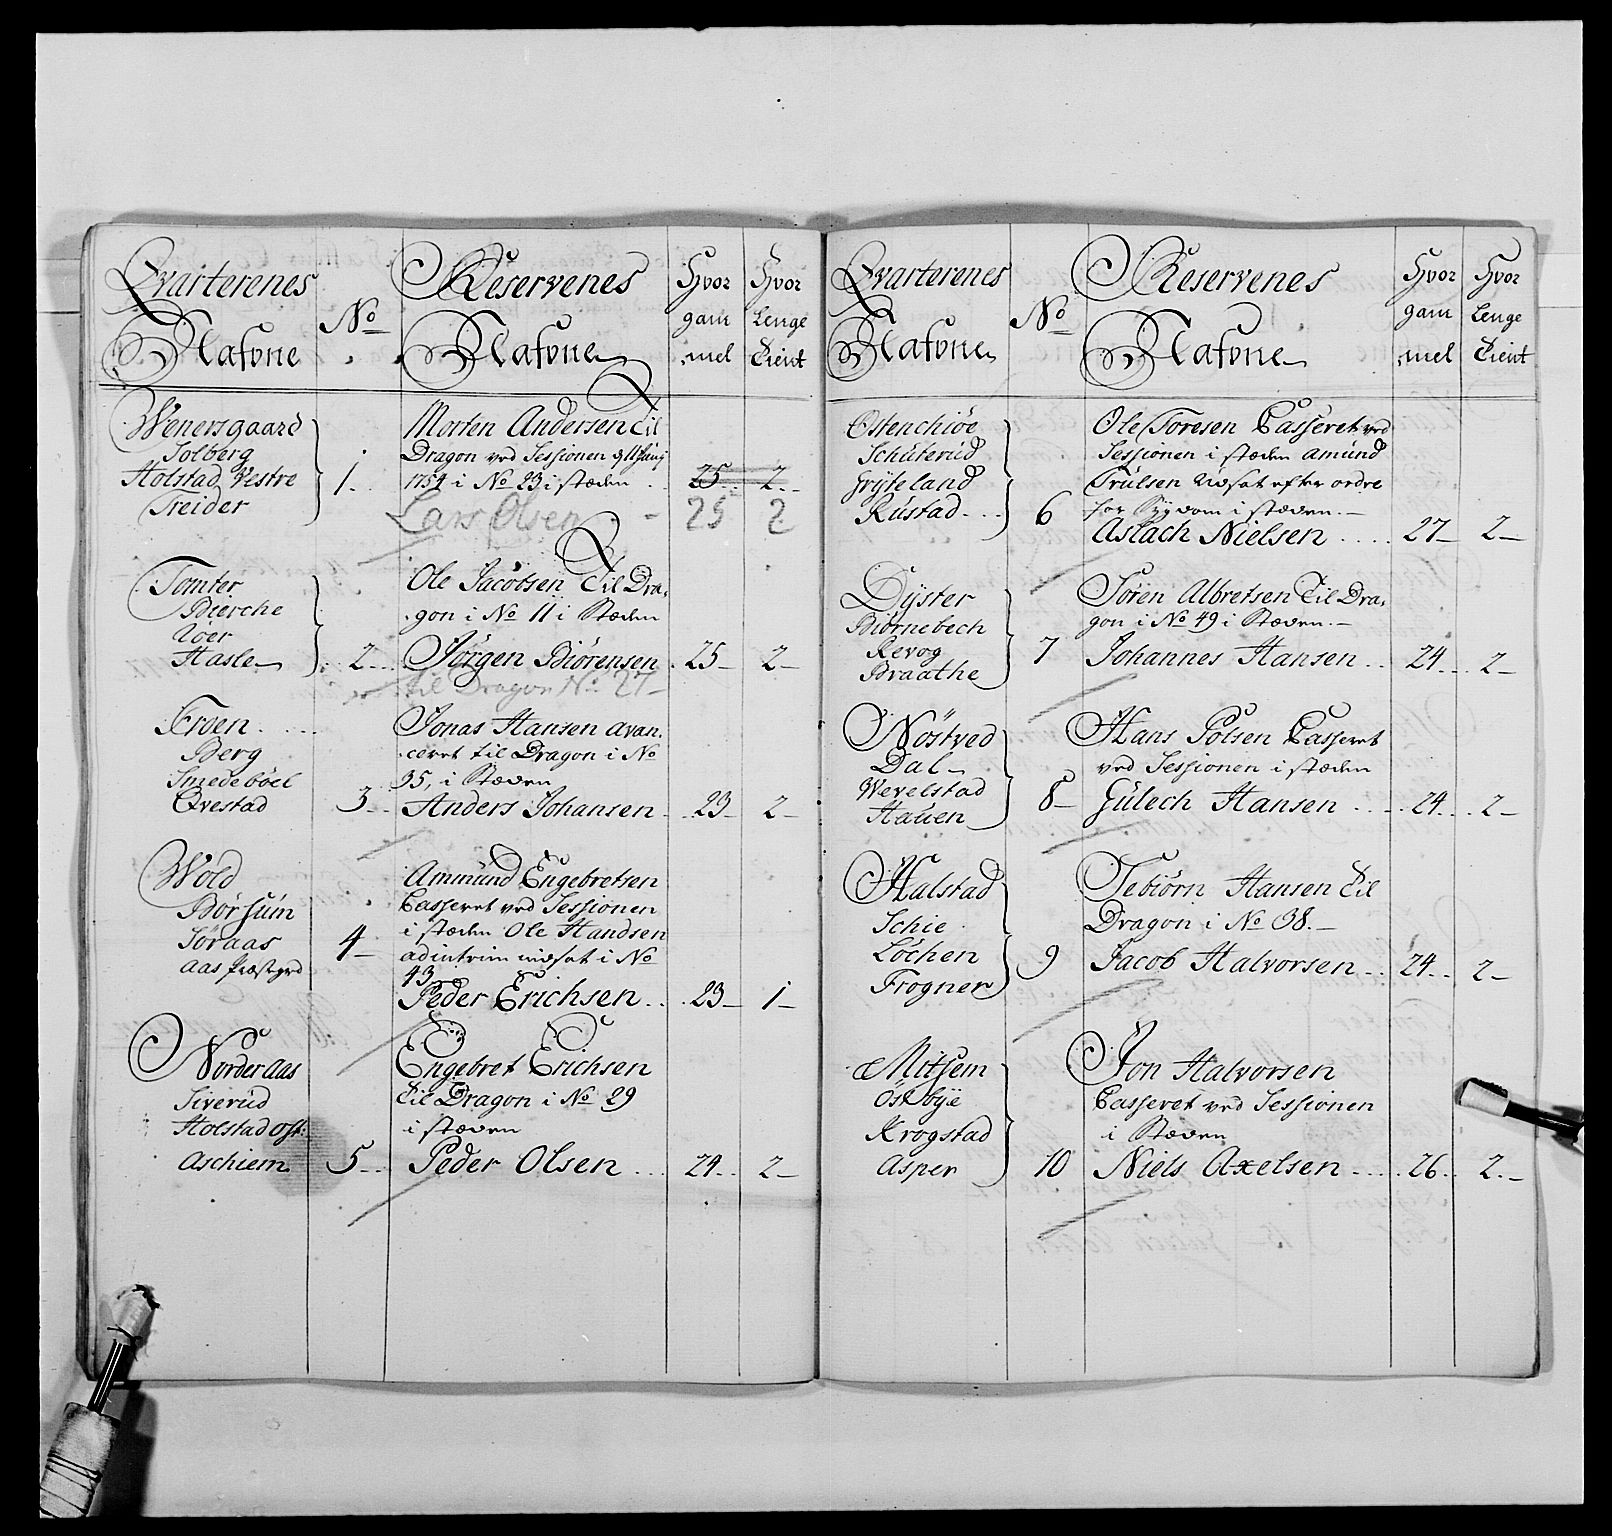 Qvarterenes
Nafvne
No
Reservenes
Nafvne
Hvor
gam
mel
Hvor
Lenge
Tient
Wenersgaard
Solberg
Holstad Vestre
Treider
1
Morten Andersen til
Dragon ved Sessionen
1754 i No 23 i stæden
25 2
Lars Olsen 25 2
Tomter
Bierche
Hasle
2
Ole Jacobsen Til Dra,
gon i No 11 i Stæden
Jörgen Biörensen 25 2
til Dragon No 27
Froen
Berg
Smedeböel
Qvestad
3
Jonas Hansen avan,
ceret til Dragon i No
35, i Stæden
Anders Johansen 23 2
Wold
Börsum
Söraas
Aas Præstgrd
4
Ammund Engebretsen
Casseret ved Sessionen
i stæden Ole Handsen
adintrim indsat i No
43
Peder Erichsen 23 1
Norderaas
Siverud
Holstad öst:
Aschiem
5
Engebret Erichsen
til Dragon i No 29
i stæden
Peder Olsen 24 2
Qvarterenes
Nafvne
No
Reservenes
Nafvne
Hvor
gam
mel
Hvor
Lenge
Tient
Östenchiöe
Schuterud
Gryteland
Rustad
6
Ole Toresen Casseret ved
Sessionen i stæden Amund
Trulsen Udsat efter ordre
for Sygdom i stæden
Aslach Nielsen 27 2
Dyster
Biörnebech
Revog
Braathe
7
Sören Albretsen Til Dra,
gon i No 49 i Stæden
Johannes Hansen 24 2
Nöstved
Dal
Wevelstad
Hauen
8
Hans Polsen Casseret
ved Sessionen i stæden
Gulech Hansen 24 2
Halstad
Schie
Löchen
Frogner
9
Tebiörn Hansen til
Dragon i No 38.
Jacob Halvorsen 24 2
Mitsem
Östbye
Krogstad
Asper
10
Jon Halvorsen
Casseret ved Sessionen
i Stæden
Niels Axelsen 26 2